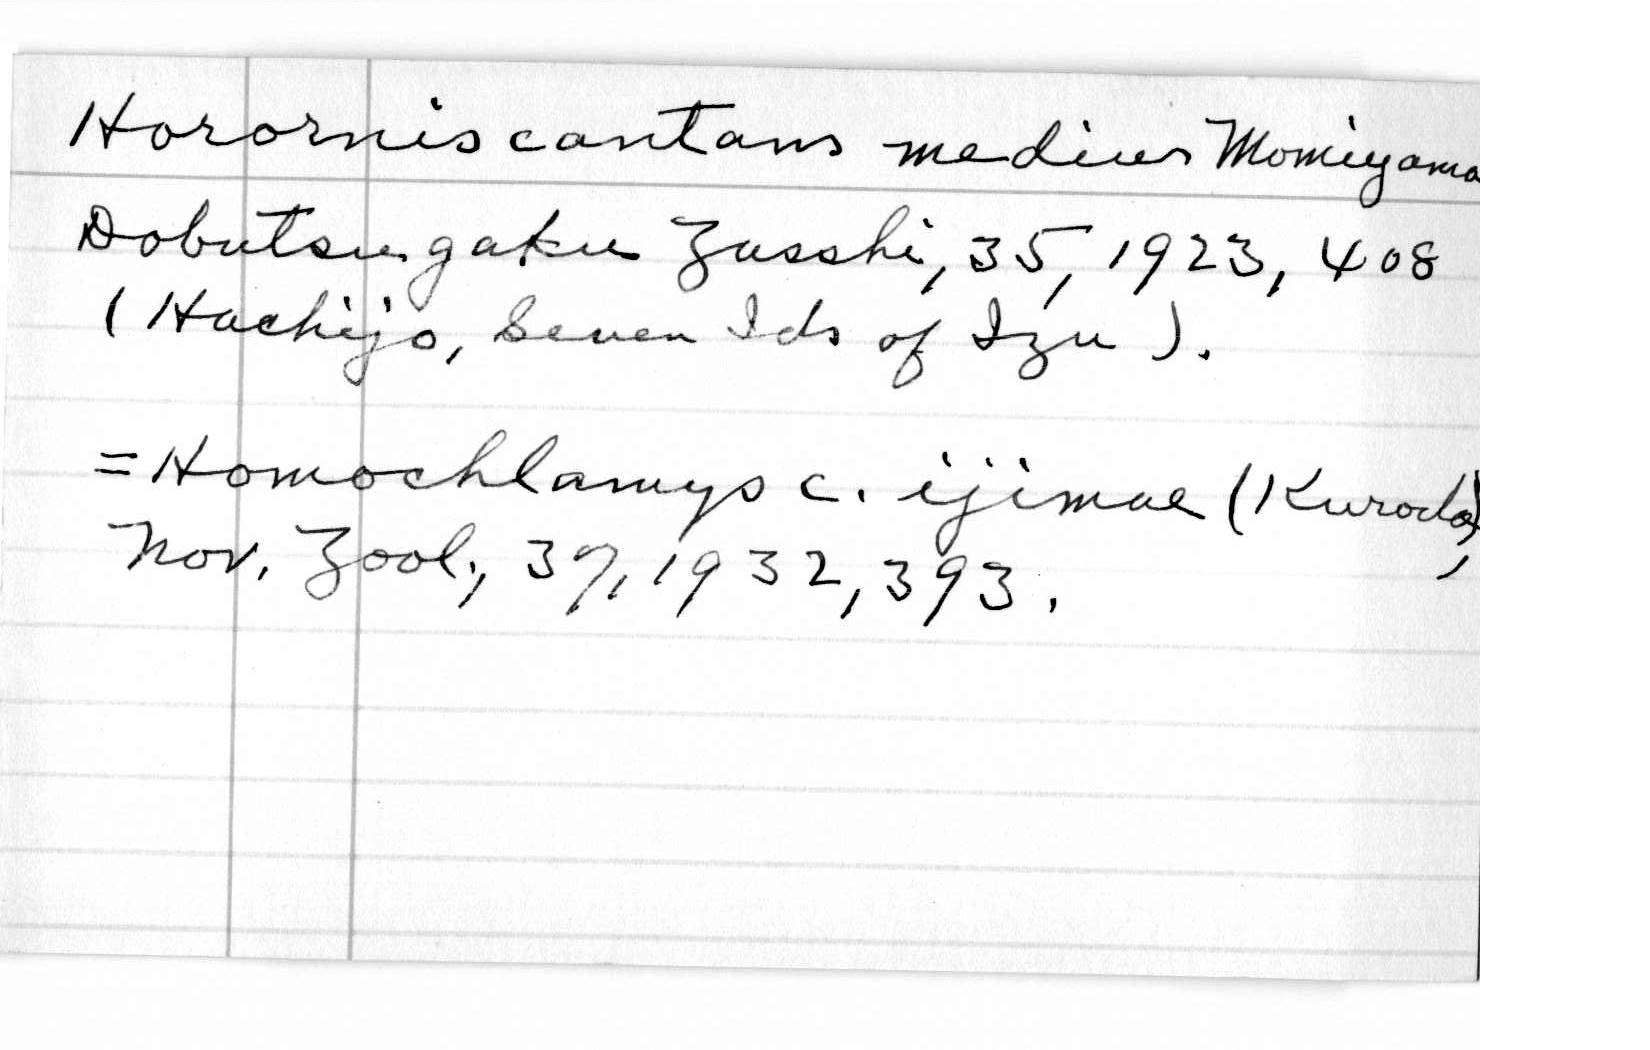 Horornis cantans medius Momiyama
Dobutsugaku Zasshi, 35, 1923, 408
(Hachijo, Seven Ids of Izu).
= Homochlamys c. ijimae (Kuroda),
Nov. Zool., 37, 1932, 393.